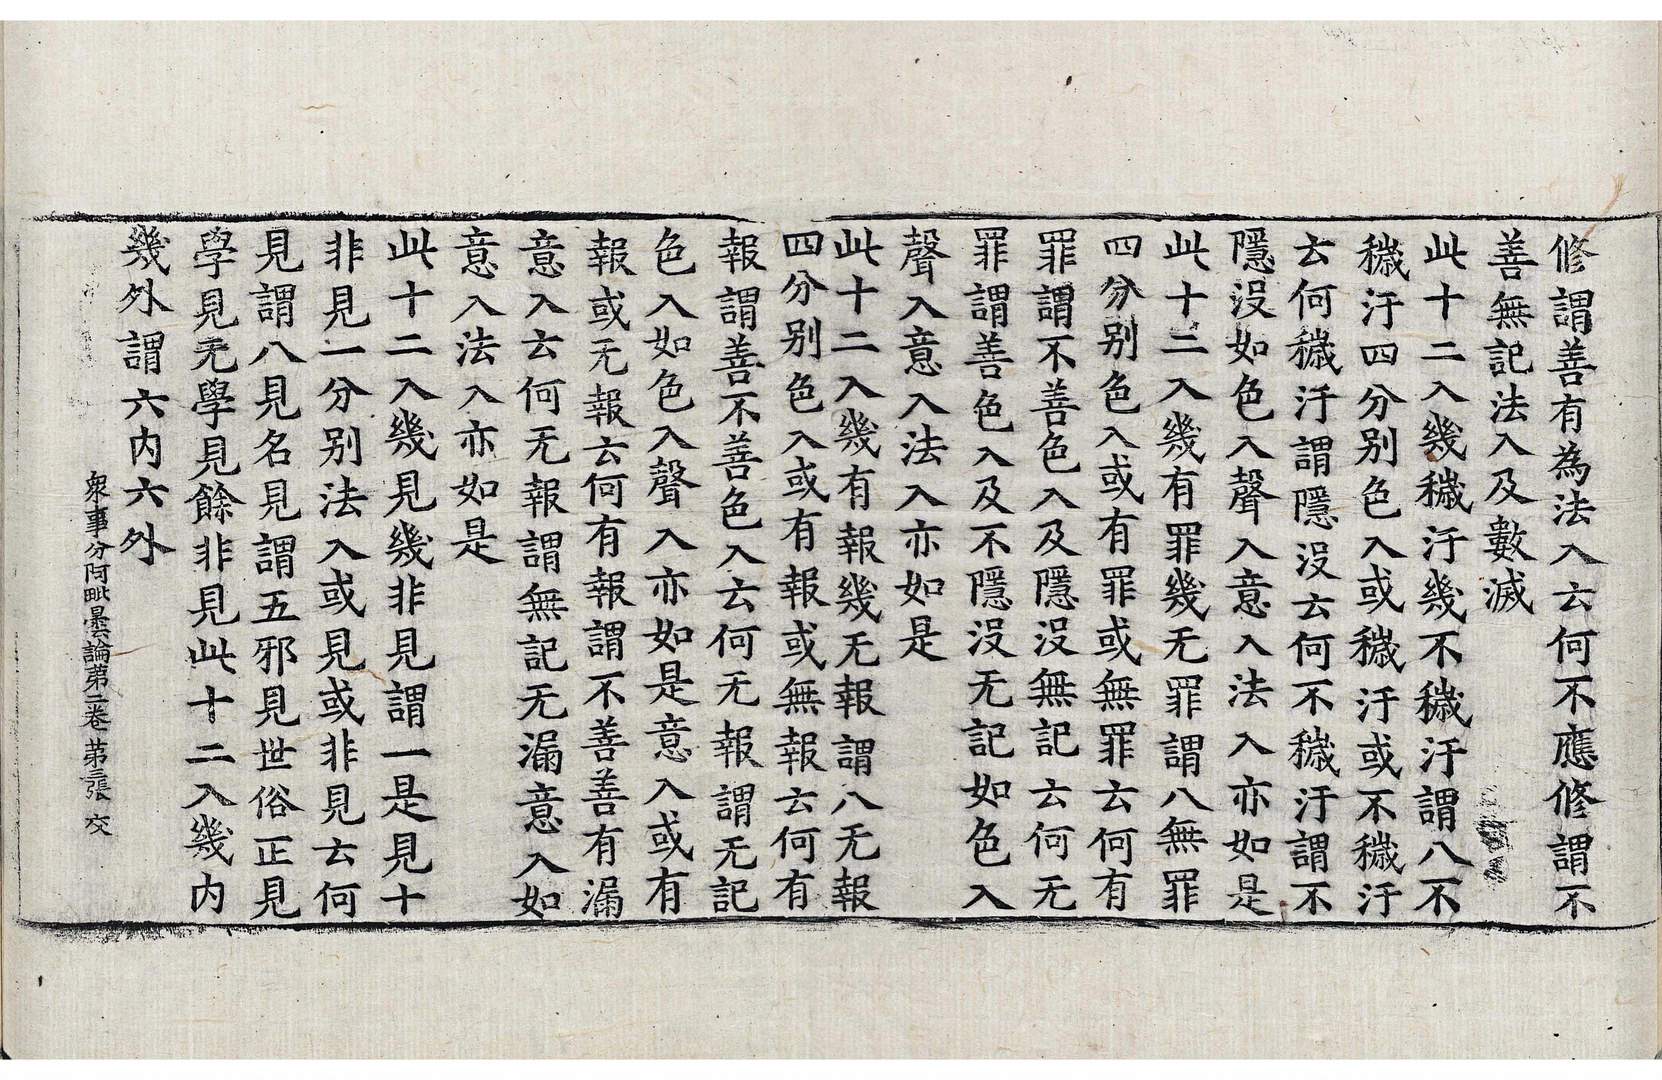 修謂善有為法入云何不應修謂不
善無記法入及數滅
此十二入幾穢汙幾不穢汙謂八不
穢汙四分別色入或穢汙或不穢汙
云何穢汙謂隱沒云何不穢汙謂不
隱沒如色入聲入意入法入亦如是
此十二入幾有罪幾无罪謂八無罪
四分別色入或有罪或無罪云何有
罪謂不善色入及隱沒無記云何无
罪謂善色入及不隱沒无記如色入
聲入意入法入亦如是
此十二入幾有報幾无報謂八无報
四分別色入或有報或無報云何有
報謂善不善色入云何无報謂无記
色入如色入聲入亦如是意入或有
報或无報云何有報謂不善善有漏
意入云何无報謂無記无漏意入如
意入法入亦如是
此十二入幾見幾非見謂一是見十
非見一分別法入或見或非見云何
見謂八見名見謂五邪見世俗正見
學見无學見餘非見此十二入幾內
幾外謂六內六外
衆事分阿毗曇論第二卷 第三張 交